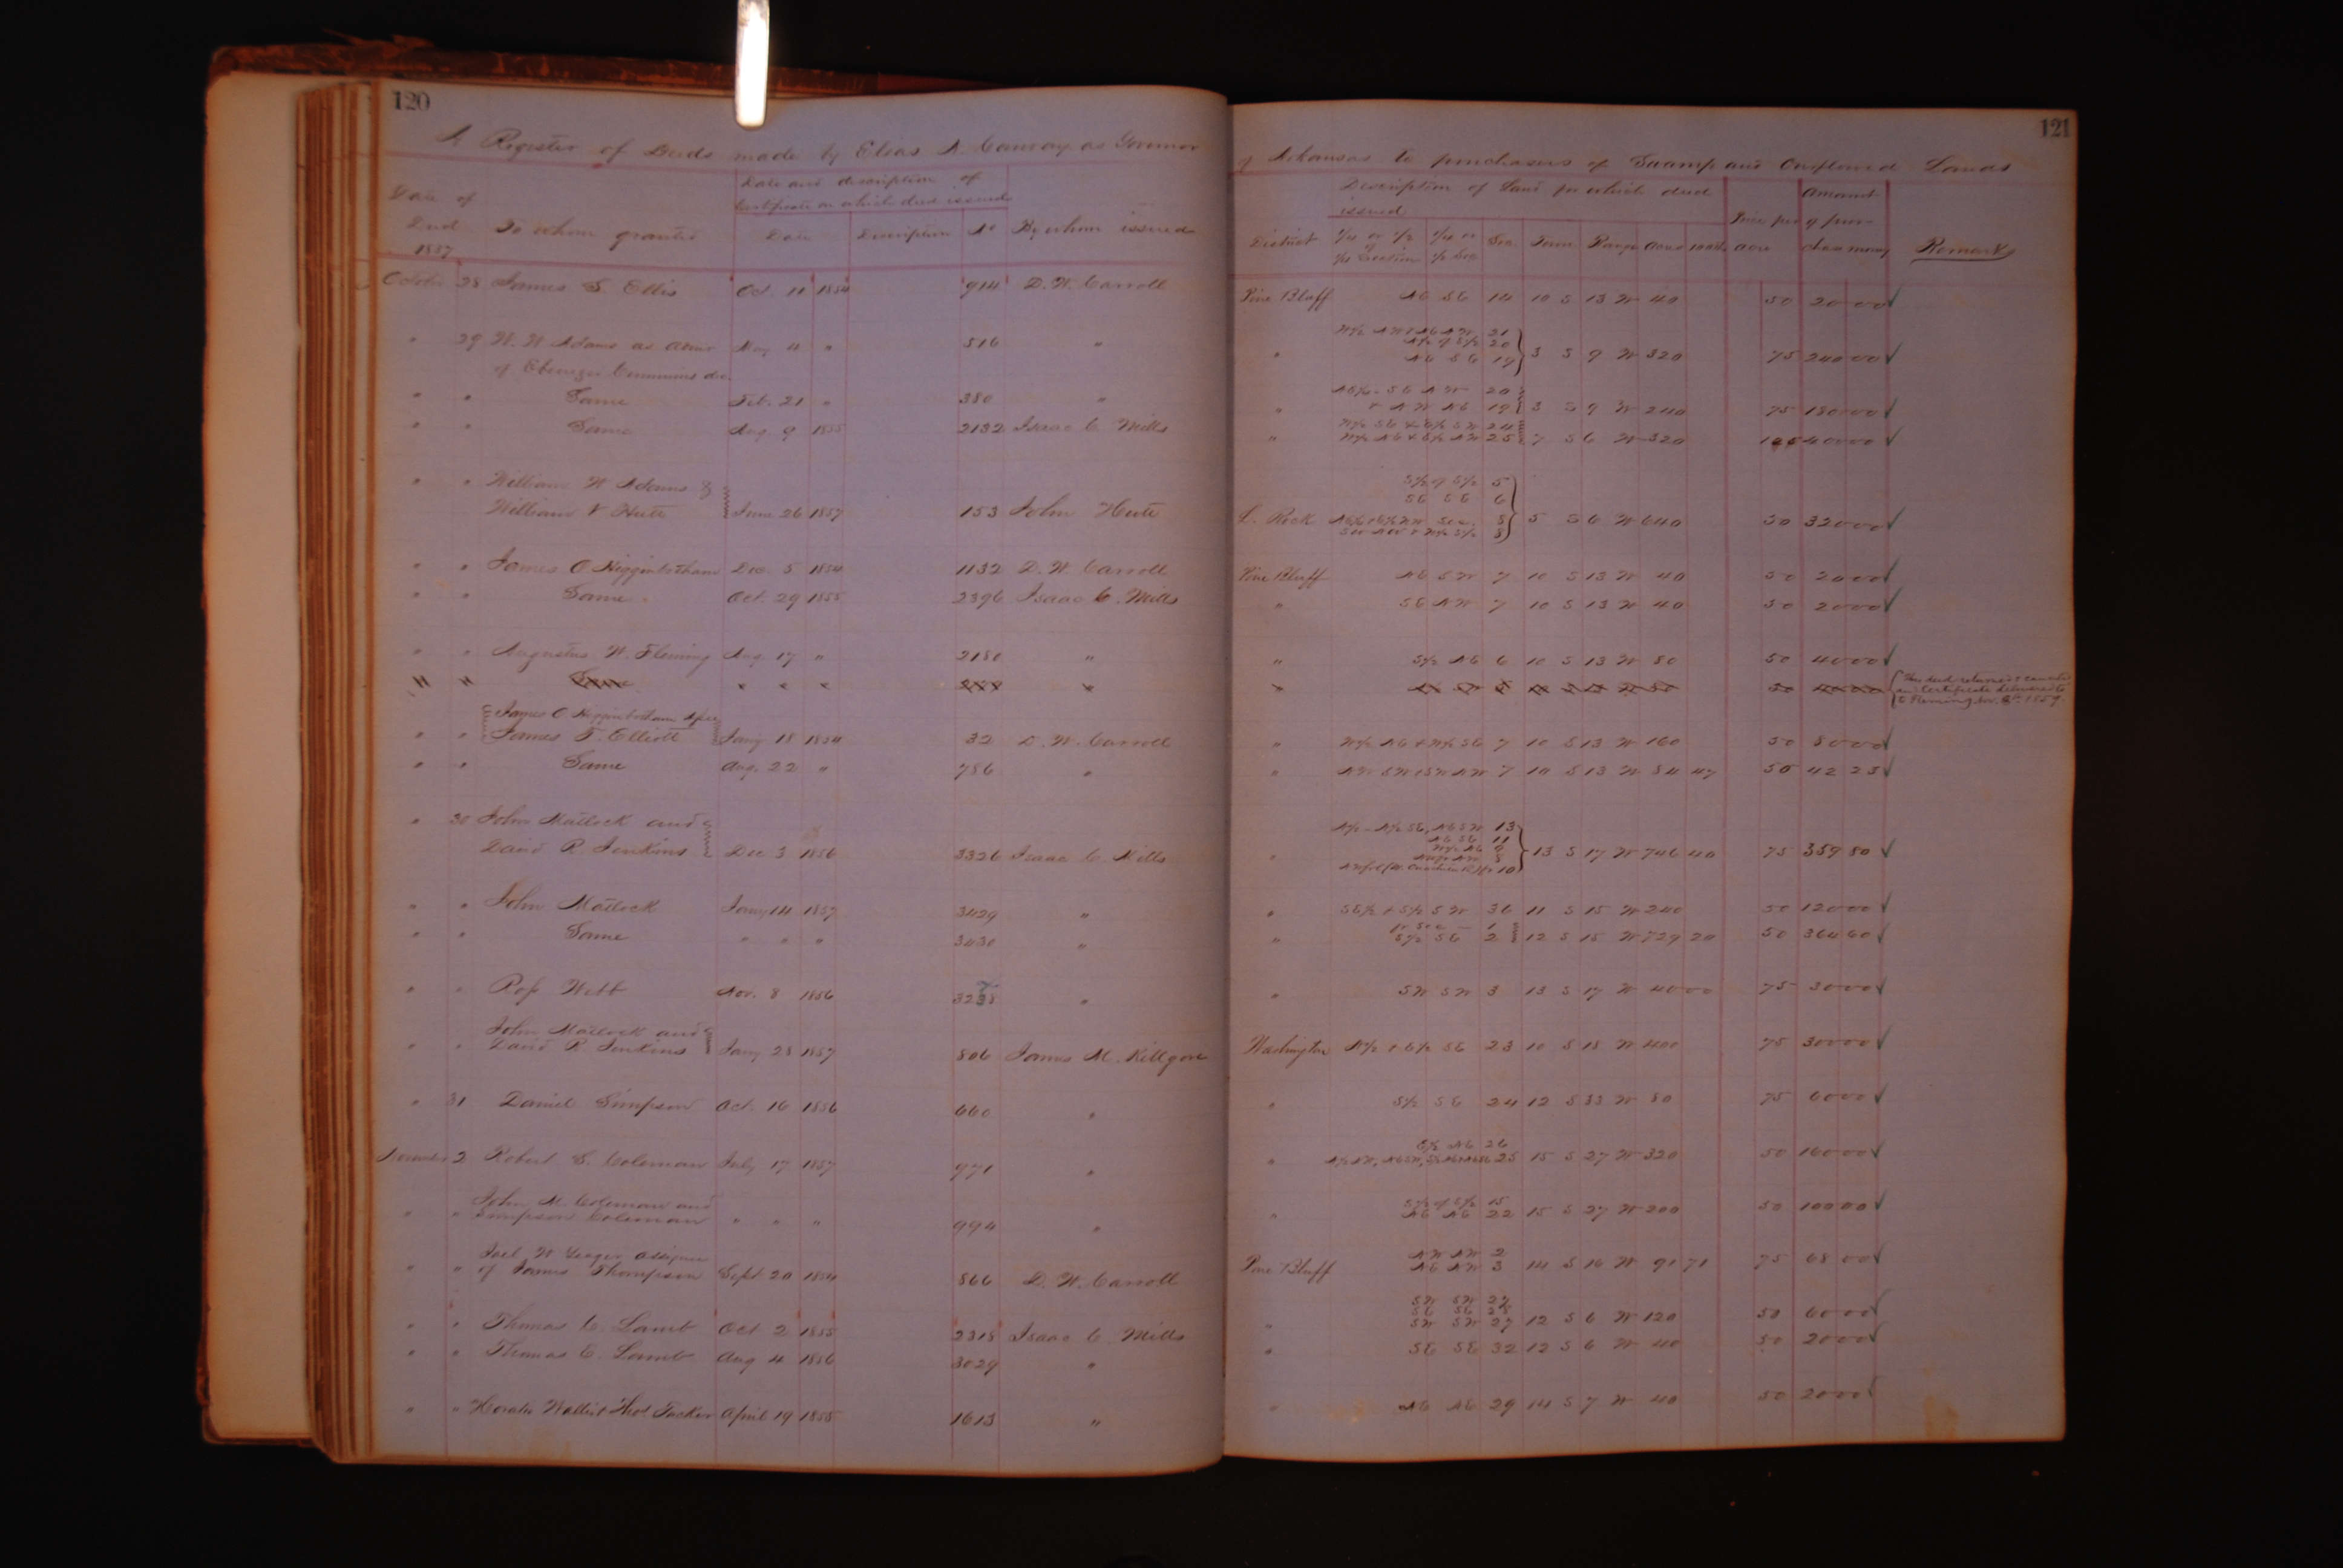 120
A Register of Deeds made by Elias N. Conway as Governor
Date of Deed 1857
To whom granted
Date and description of certificate on which deed issued
Date Description No
By whom issued
October 28 James S. Ellis Oct. 11 1854 914 D. W. Carroll
" 29 W. W Adams as Admr May 4 " 516 "
of Ebenezer Cummins dec.
" " Same Feb. 21 " 380 "
" " Same Aug. 9 1855 2132 Isaac C. Mills
" " William W Adams &
William V Hute June 26 1857 153 John Hute
" " James O Higginbotham Dec. 5 1854 1132 D. W. Carroll
" " Same Oct. 29 1855 2396 Isaac C. Mills
" " Augustus W. Fleming Aug. 17 " 2180 "
" " Same " " " "
James O Higginbotham
" " James T. Elliott Jany 18 1854 32 D. W. Carroll
" " Same Aug. 22 " 786 "
" 30 John Matlock and
David R. Jenkins Dec 3 1856 3326 Isaac C. Mills
" " John Matlock Jany 14 1857 3429 "
" " Same " " " 3430 "
" " Ross Webb Nov. 8 1856 "
John Matlock and
" " David R. Jenkins Jany 28 1857 806 James M. Killgore
" 31 Daniel Simpson Oct. 16 1856 660 "
November 2 Robert S. Coleman July 17 1857 971 "
John M. Coleman and
" " Simpson Coleman " " " 994 "
Joel W assignee
" " of James Thompson Sept 20 1854 866 D. W. Carroll
" " Thomas C. Lamb Oct 2 1855 2318 Isaac C. Mills
" " Thomas C. Lamb Aug 4 1856 3029 "
" " Horatio Tucker April 19 1855 1613 "
121
of Arkansas to purchasers of Swamp and Overflowed Lands
Description of Land for which deed issued
District 1/4 or 1/2 of 1/4 Section 1/4 or 1/2 Sec Sec. Town. Range Acres 100ths
Price per acre
Amount of purchase money
Remarks
Pine Bluff NE SE 14 10 S 13 W 40 50 20 00
W½ NW & NE NW 21
N½ of S½ 20
" NE SE 19 3 S 9 W 320 75 240 00
NE¼ - SE NW 20
" & NW NE 19 3 S 9 W 240 75 180 00
W½ SE & E½ SW 24
" W½ NE & E½ NW 25 7 S 6 W 320 400 00
S½ of S½ 5
SE SE 6
L. Rock 5 S 6 W 640 50 320 00
Pine Bluff NE SW 7 10 S 13 W 40 50 20 00
" SE NW 7 10 S 13 W 40 50 20 00
" S½ NE 6 10 S 13 W 80 50 40 00
This deed returned & cancelled
and Certificate delivered to
to Fleming Nov. 1859.
" W½ NE & W½ SE 7 10 S 13 W 160 50 80 00
" NW SW & SW NW 7 10 S 13 W 84 47 50 42 23
N½ - N½ SE, NE SW 13
NE SE 11
W½ NE 9
" 8 13 S 17 W 746 40 75 559 80
10
" SE¼ & S½ SW 36 11 S 15 W 240 50 120 00
Fr Sec 1
" S½ SE 2 12 S 15 W 729 20 50 364 60
" SW SW 3 13 S 17 W 40 00 75 30 00
Washington N½ & E½ SE 23 10 S 18 W 400 75 300 00
" S½ SE 24 12 S 33 W 80 75 60 00
E½ NE 26
" 25 15 S 27 W 320 50 160 00
S½ of S½ 15
" NE NE 22 15 S 27 W 200 50 100 00
NW NW 2
Pine Bluff NE NW 3 14 S 16 W 91 71 75 68 00
SW SW 27
SE SE 28
" SW SW 27 12 S 6 W 120 50 60 00
" SE SE 32 12 S 6 W 40 50 20 00
" NE NE 29 14 S 7 W 40 50 20 00